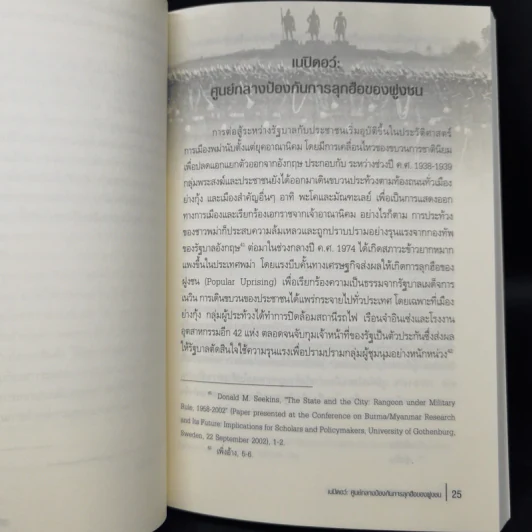 เนปิดอว์:
ศูนย์กลางป้องกันการลุกฮือของฝูงชน
การต่อสู้ระหว่างรัฐบาลกับประชาชนเริ่มอุบัติขึ้นในประวัติศาสตร์
การเมืองพม่านับตั้งแต่ยุคอาณานิคม โดยมีการเคลื่อนไหวของขบวนการชาตินิยม
เพื่อปลดแอกแยกตัวออกจากอังกฤษ ประกอบกับ ระหว่างช่วงปี ค.ศ. 1938-1939
กลุ่มพระสงฆ์และประชาชนยังได้ออกมาเดินขบวนประท้วงตามท้องถนนทั่วเมือง
ย่างกุ้ง และเมืองสำคัญอื่นๆ อาทิ พะโคและมัณฑะเลย์ เพื่อเป็นการแสดงออก
ทางการเมืองและเรียกร้องเอกราชจากเจ้าอาณานิคม อย่างไรก็ตาม การประท้วง
ของชาวพม่าก็ประสบความล้มเหลวและถูกปราบปรามอย่างรุนแรงจากกองทัพ
ของรัฐบาลอังกฤษ ต่อมาในช่วงกลางปี ค.ศ. 1974 ได้เกิดสภาวะข้าวยากหมาก
แพงขึ้นในประเทศพม่า โดยแรงบีบคั้นทางเศรษฐกิจส่งผลให้เกิดการลุกฮือของ
ฝูงชน (Popular Uprising) เพื่อเรียกร้องความเป็นธรรมจากรัฐบาลเผด็จการ
เนวิน การเดินขบวนของประชาชนได้แพร่กระจายไปทั่วประเทศ โดยเฉพาะที่เมือง
ย่างกุ้ง กลุ่มผู้ประท้วงได้ทำการปิดล้อมสถานีรถไฟ เรือนจำอินเซ่งและโรงงาน
อุตสาหกรรมอีก 42 แห่ง ตลอดจนจับกุมเจ้าหน้าที่ของรัฐเป็นตัวประกันซึ่งส่งผล
ให้รัฐบาลตัดสินใจใช้ความรุนแรงเพื่อปรามปรามกลุ่มผู้ชุมนุมอย่างหนักหน่วง
Donald M. Seekins, "The State and the City: Rangoon under Military
Rule, 1988-2002" (Paper presented at the Conference on Burma/Myanmar Research
and Its Future: Implications for Scholars and Policymakers, University of Gothenburg,
Sweden, 22 September 2002), 1-2.
เพิ่งอ้าง, 5-6.
เนปิดอว์: ศูนย์กลางป้องกันการลุกฮือของฝูงชน | 25